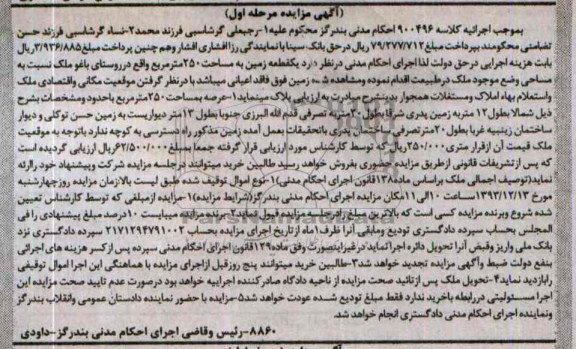 (آگهی مزایده مرحله اول)
بموجب اجرائیه کلاسه ۹۰۰۴۹۶ احکام مدنی بندرگز محکوم علیه ۱-رجبعلی گرشاسبی فرزند محمد۲-نساء گرشاسبی فرزند حسن
تضامنی محکومند بپرداخت مبلغ ۷۹/۲۷۷/۷۱۲ ریال درحق بانک سینا با نمایندگی رزا افشاری افشار وهم چنین پرداخت مبلغ ۳/۹۳۶/۸۸۵ریال
بابت هزینه اجرایی درحق دولت لذا اجرای احکام مدنی درنظر دارد یکقطعه زمین به مساحت ۲۵۰مترمربع واقع درروستای باغو ملک نسبت به
مساحی وضع موجود ملک درطبیعت اقدام نموده ومشاهده شد زمین فوق فاقد اعیانی میباشد با درنظر گرفتن موقعیت مکانی واقتصادی ملک
واستعلام بهاء املاک ومستغلات همجوار بدینشرح مبادرت به ارزیابی پلاک مینماید۱-عرصه بمساحت ۲۵۰مترمربع باحدود ومشخصات بشرح
ذیل شمالا بطول ۱۲ متربه زمین پدری شرقا بطول ۲۰متربه تصرفی قدم الله البرزی جنوبا بطول ۱۳متر دیواریست به زمین حسن توکلی و دیوار
ساختمان زینبیه غربا بطول ۲۰مترتصرفی پدری باتحقیقات بعمل آمده زمین مذکور راه دسترسی به کوچه ندارد باتوجه به موقعیت
ملک قیمت آن ازقرار متری ۲۵۰/۰۰۰ریال که توسط کارشناس مورد ارزیابی قرار گرفته جمعا بمبلغ ۶۲/۵۰۰/۰۰۰ریال ارزیابی گردیده است
که پس ازتشریفات قانونی ازطریق مزایده حضوری بفروش خواهد رسید طالبین خرید میتوانند درجلسه مزایده شرکت وپیشنهاد خود راارئه
نماید(توصیف اجمالی ملک براساس ماده۱۳۸قانون اجرای احکام مدنی)۱-نوع اموال توقیف شده طبق لیست بالازمان مزایده روزچهارشنبه
مورخ ۱۳۹۳/۱۲/۱۳ ساعت ۱۰الی۱۱مکان مزایده اجرای احکام مدنی بندرگز(شرایط مزایده)۱-مزایده ازمبلغی که توسط کارشناس تعیین
شده شروع وبرنده مزایده کسی است که بالاترین مبلغ رادرجلسه مزایده قبول نماید۲-برنده مزایده میبایست ۱۰درصد مبلغ پیشنهادی را فی
المجلس بحساب سپرده دادگستری تودیع ومابقی آنرا ظرف۱ماه ازتاریخ اجرای مزایده بحساب ۲۱۷۱۲۹۴۷۹۱۰۰۲ سپرده دادگستری نزد
بانک ملی واریز وقبض آنرا تحویل دائره اجرا نماید درغیراینصورت وفق ماده۱۲۹قانون اجرای احکام مدنی سپرده پس ازکسر هزینه های اجرائی
بنفع دولت ضبط وآگهی مزایده تجدید خواهد شد۳-طالبین خرید میتوانند پنج روزقبل ازاجرای مزایده با هماهنگی این اجرا اموال توقیفی
رابازدید نماید۴-تحویل ملک پس ازتائید صحت مزایده از ناحیه دادگاه صادرکننده اجراییه خواهد بود درصورت عدم تایید صحت مزایده این
اجرا مسئولیتی دررابطه باخرید ندارد فقط مبلغ تودیع شده عودت خواهد شد۵-مزایده با حضور نماینده دادستان عمومی وانقلاب بندرگز
ونماینده اجرای احکام مدنی دادگستری انجام خواهد شد.
۸۸۶۰-رئیس وقاضی اجرای احکام مدنی بندرگز-داودی